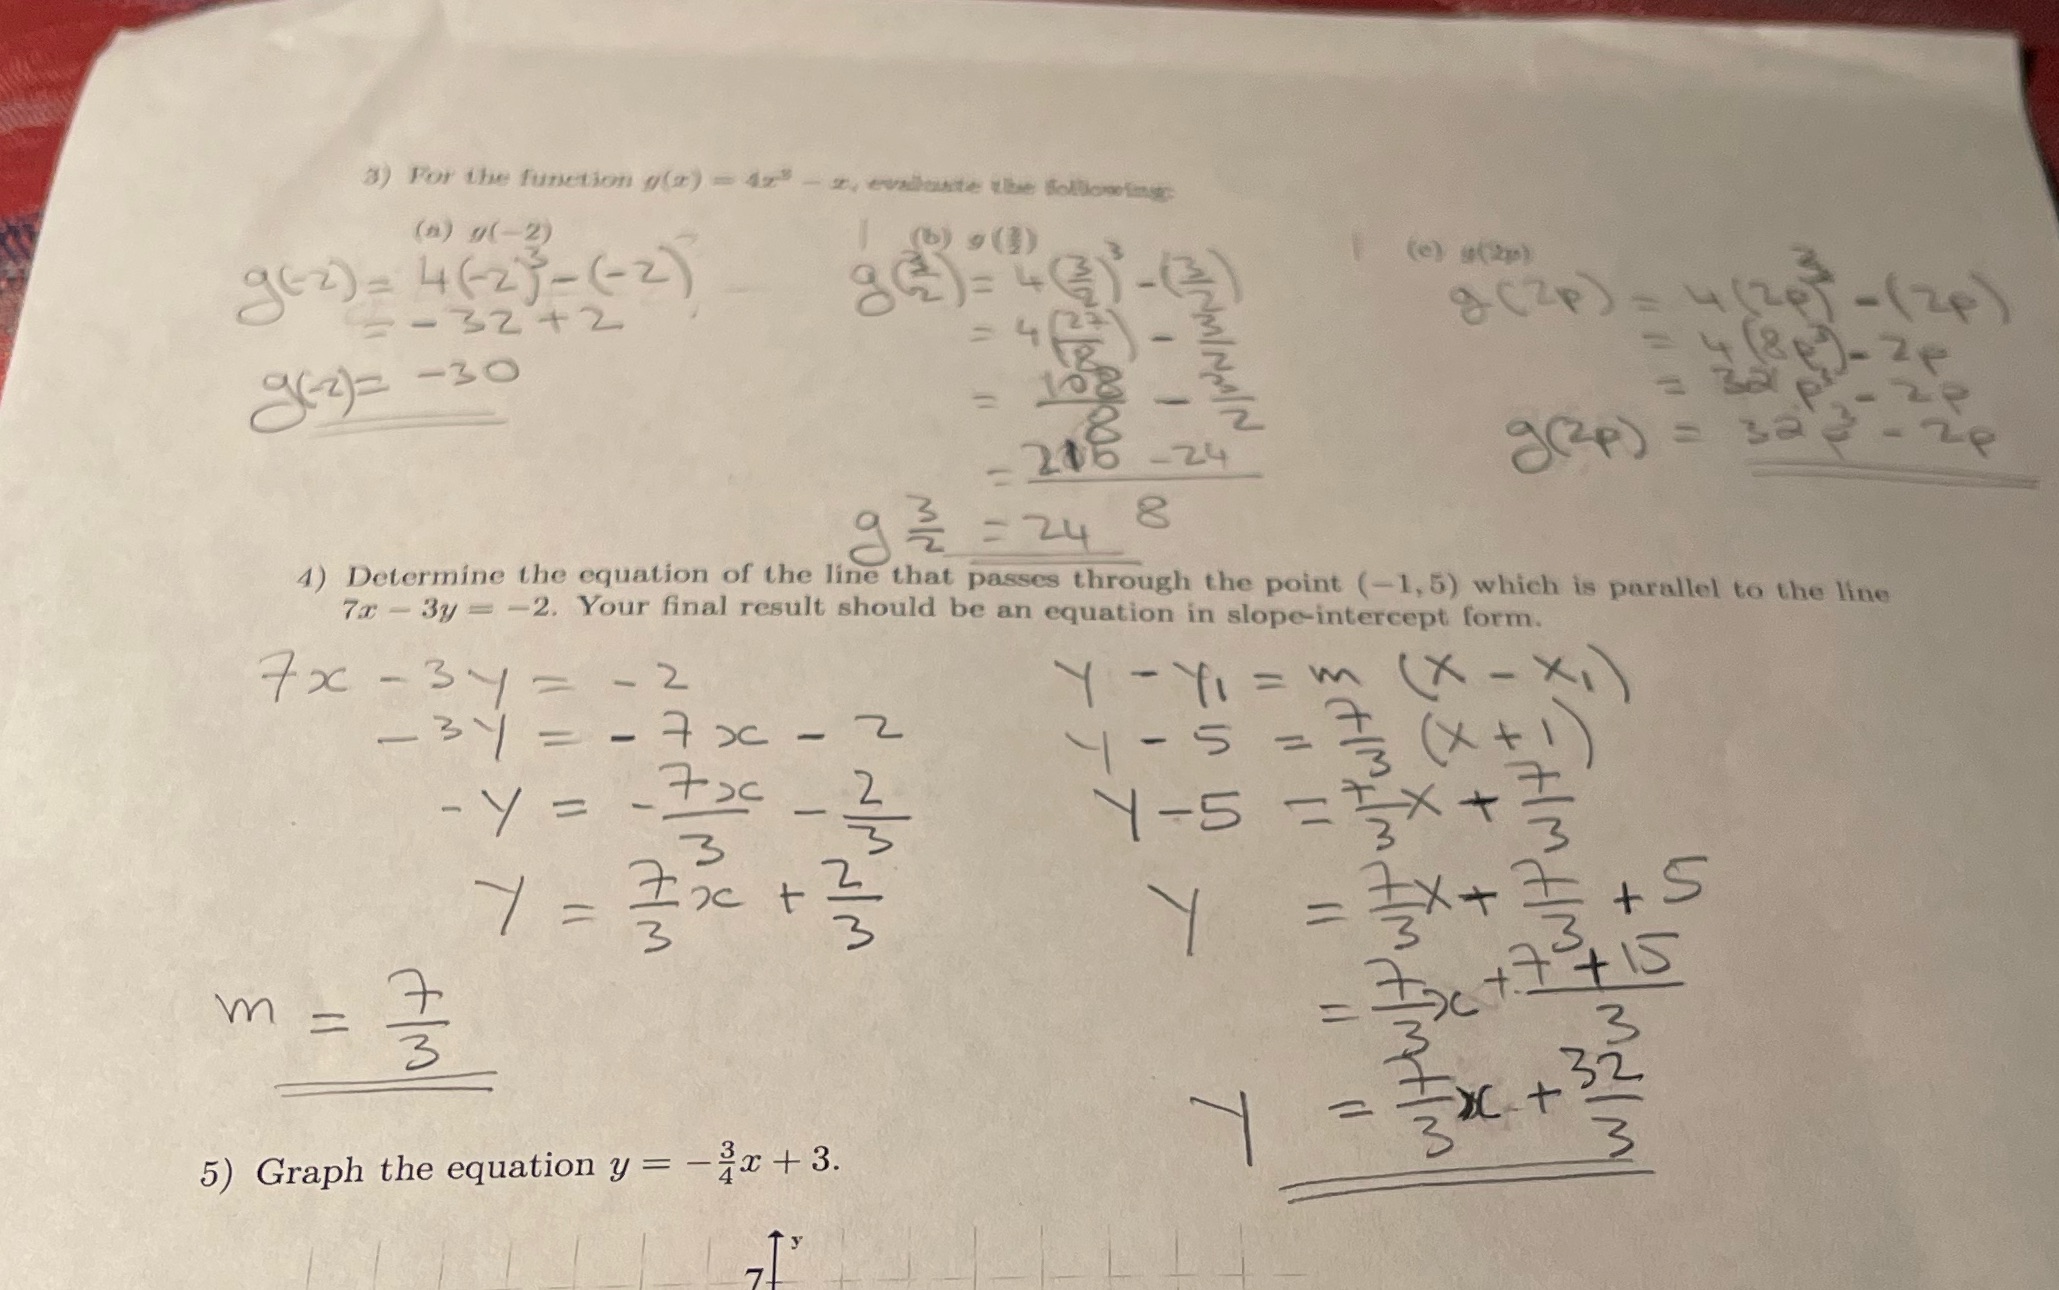 3) For the function g(x) = 4x³ − x, evaluate the following:
(a) g(−2)
g(-2) = 4(-2)³ - (-2)
= - 32 + 2
g(-2) = -30
(b) g(3/2)
g(3/2) = 4(3/2)³ - (3/2)
= 4(27/8) - 3/2
= 108/8 - 3/2
= 216 - 24 / 8
g 3/2 = 24
(c) g(2p)
g(2p) = 4(2p)³ - (2p)
= 4(8p³) - 2p
= 32p³ - 2p
g(2p) = 32p³ - 2p
4) Determine the equation of the line that passes through the point (−1, 5) which is parallel to the line
7x − 3y = −2. Your final result should be an equation in slope-intercept form.
7x - 3y = - 2
- 3y = - 7x - 2
- y = - 7x/3 - 2/3
y = 7/3 x + 2/3
m = 7/3
y - y₁ = m (x - x₁)
y - 5 = 7/3 (x + 1)
y - 5 = 7/3 x + 7/3
y = 7/3 x + 7/3 + 5
= 7/3 x + 7 + 15 / 3
y = 7/3 x + 32/3
5) Graph the equation y = −3/4 x + 3.
y
7